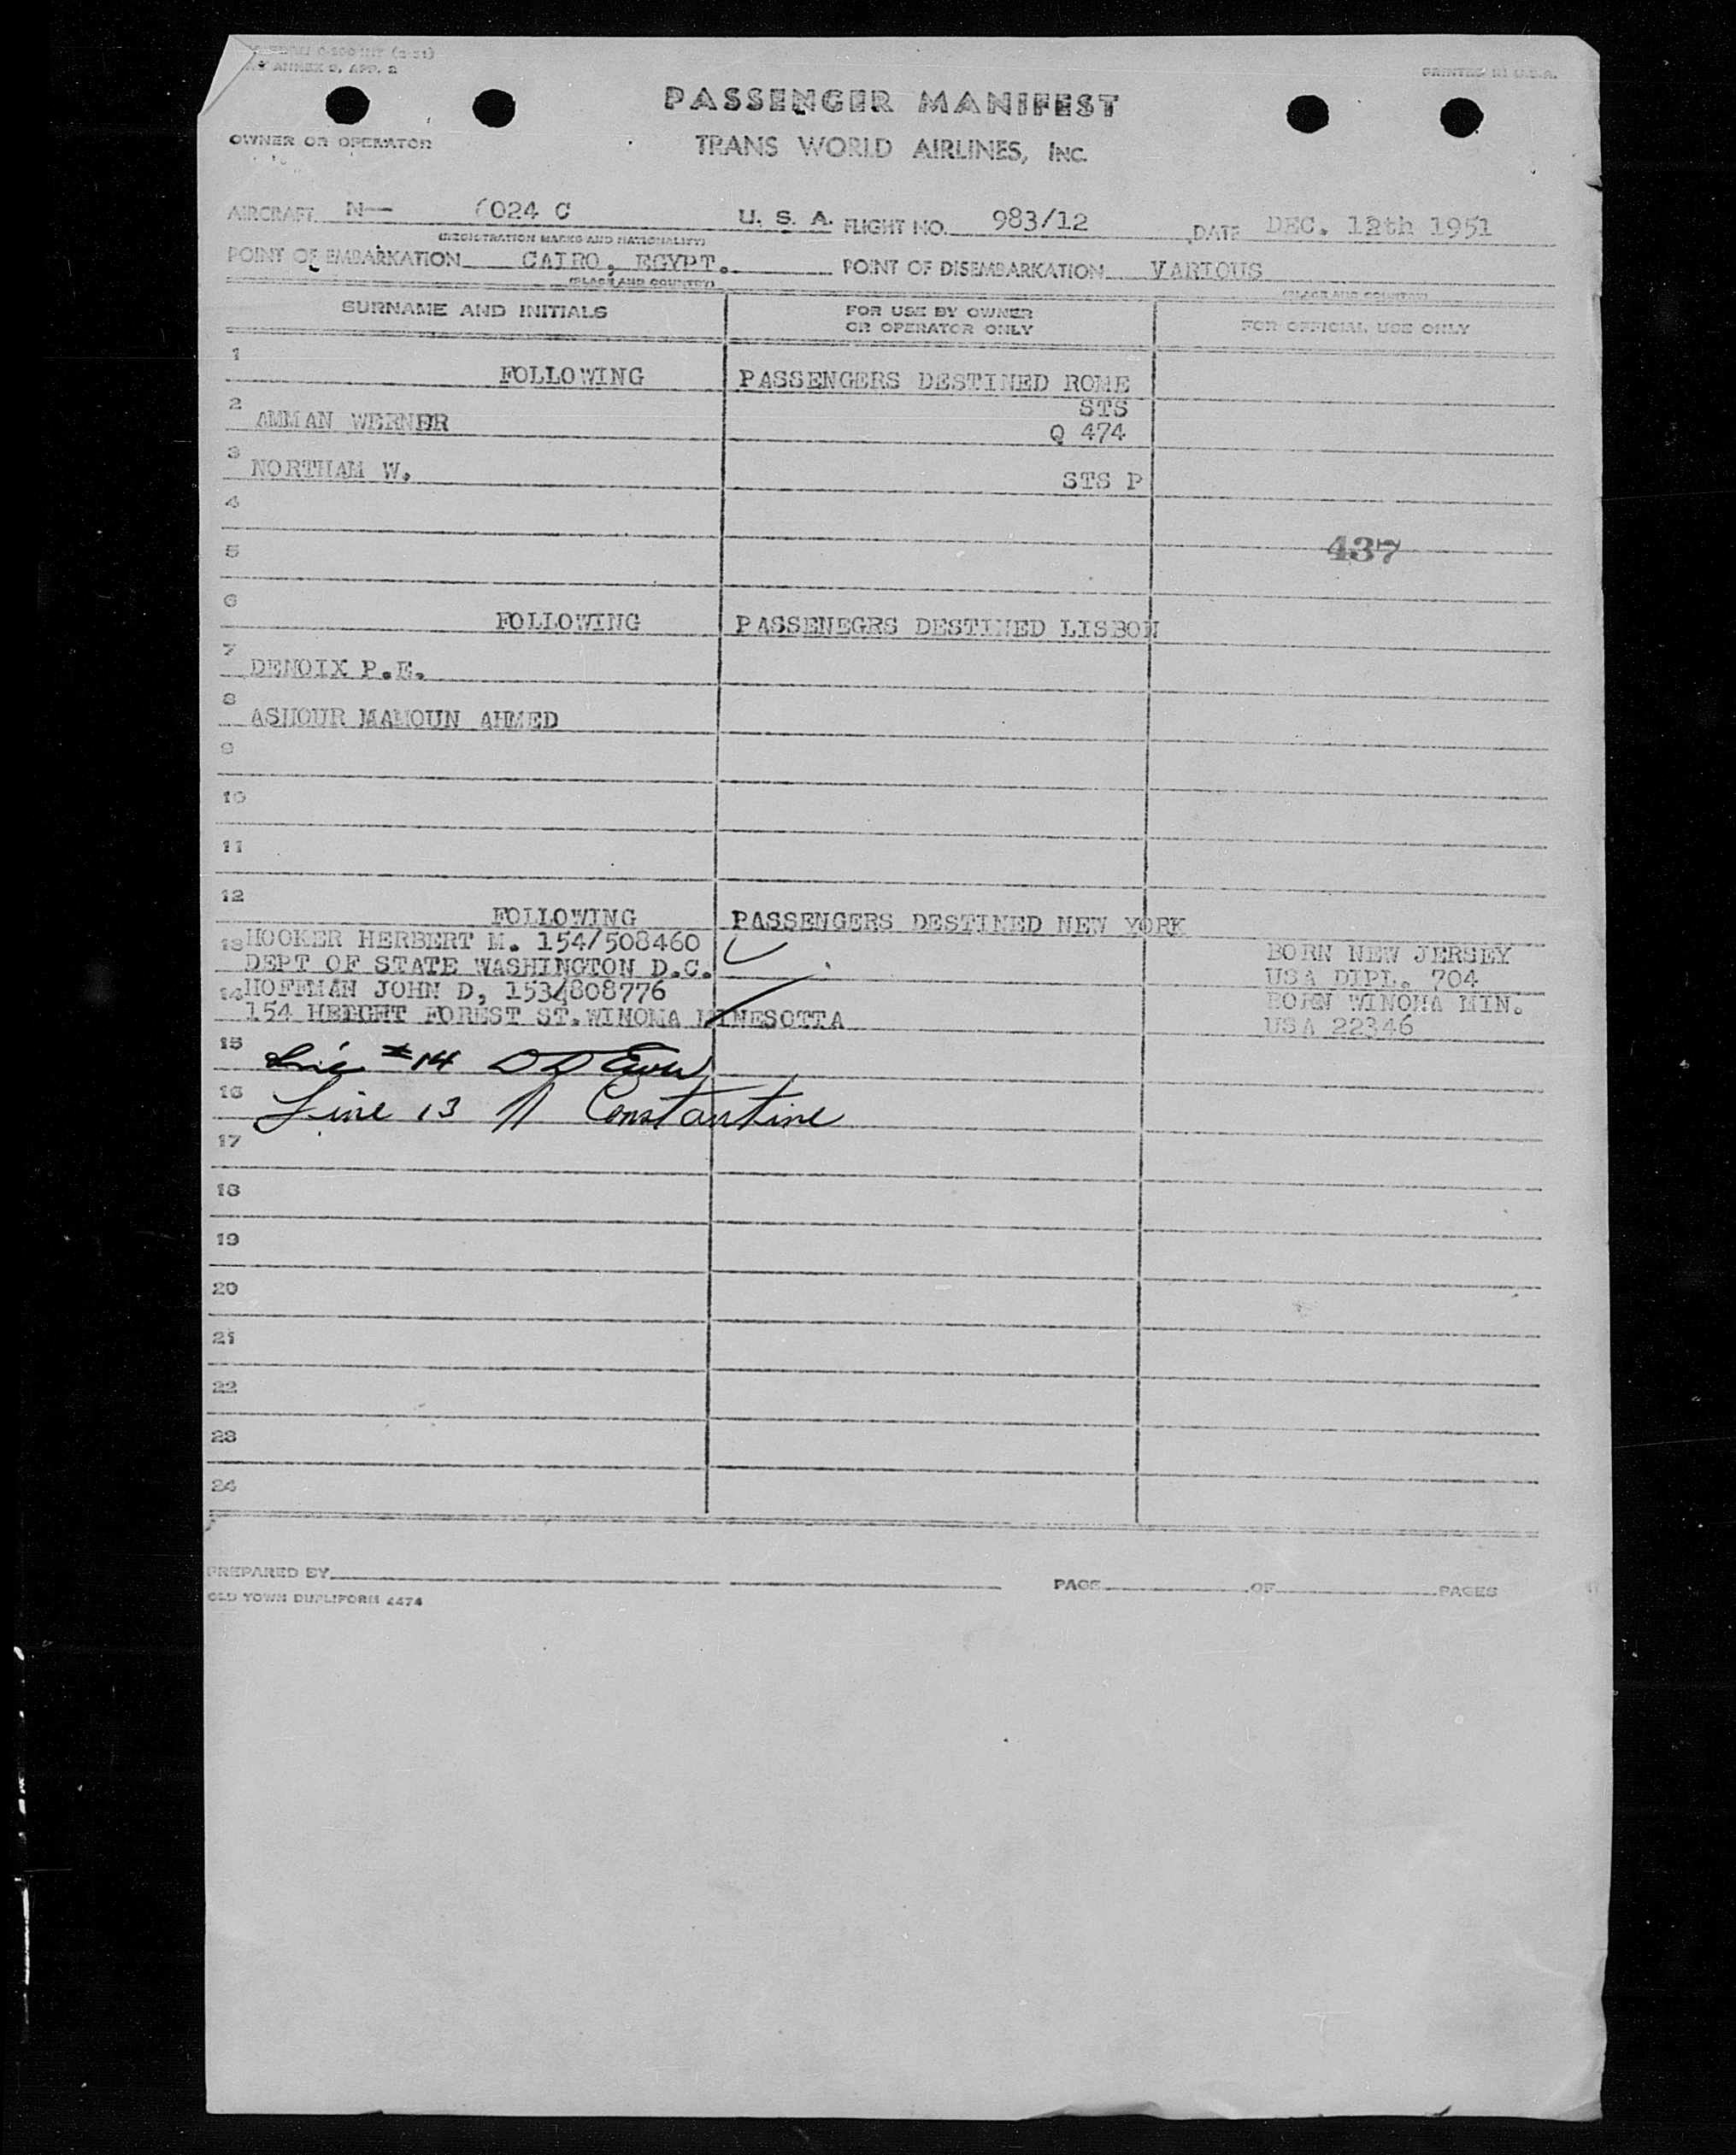 ANNEX 9, APP. 2
PRINTED IN U.S.A.
PASSENGER MANIFEST
OWNER OR OPERATOR
TRANS WORLD AIRLINES, INC.
AIRCRAFT N— 6024 C U. S. A. FLIGHT NO. 983/12 DATE DEC. 12th 1951
(REGISTRATION MARKS AND NATIONALITY)
POINT OF EMBARKATION CAIRO, EGYPT. POINT OF DISEMBARKATION VARIOUS
(PLACE AND COUNTRY) (PLACE AND COUNTRY)
SURNAME AND INITIALS FOR USE BY OWNER OR OPERATOR ONLY FOR OFFICIAL USE ONLY
1 FOLLOWING PASSENGERS DESTINED ROME
STS
2 AMMAN WERNER Q 474
3 NORTHAM W. STS P
4
437
5
6 FOLLOWING PASSENEGRS DESTINED LISBON
7 DENOIX P.E.
8 ASHOUR MAMOUN AHMED
9
10
11
12 FOLLOWING PASSENGERS DESTINED NEW YORK
13 HOOKER HERBERT M. 154/508460 BORN NEW JERSEY
DEPT OF STATE WASHINGTON D.C. USA DIPL. 704
14 HOFFMAN JOHN D, 1534808776 BORN WINONA MIN.
154 HEIGHT FOREST ST.WINONA MINESOTTA USA 22346
15 #14
16 Line 13 A Constantine
17
18
19
20
21
22
23
24
PREPARED BY PAGE OF PAGES
OLD TOWN DUPLIFORM 4474